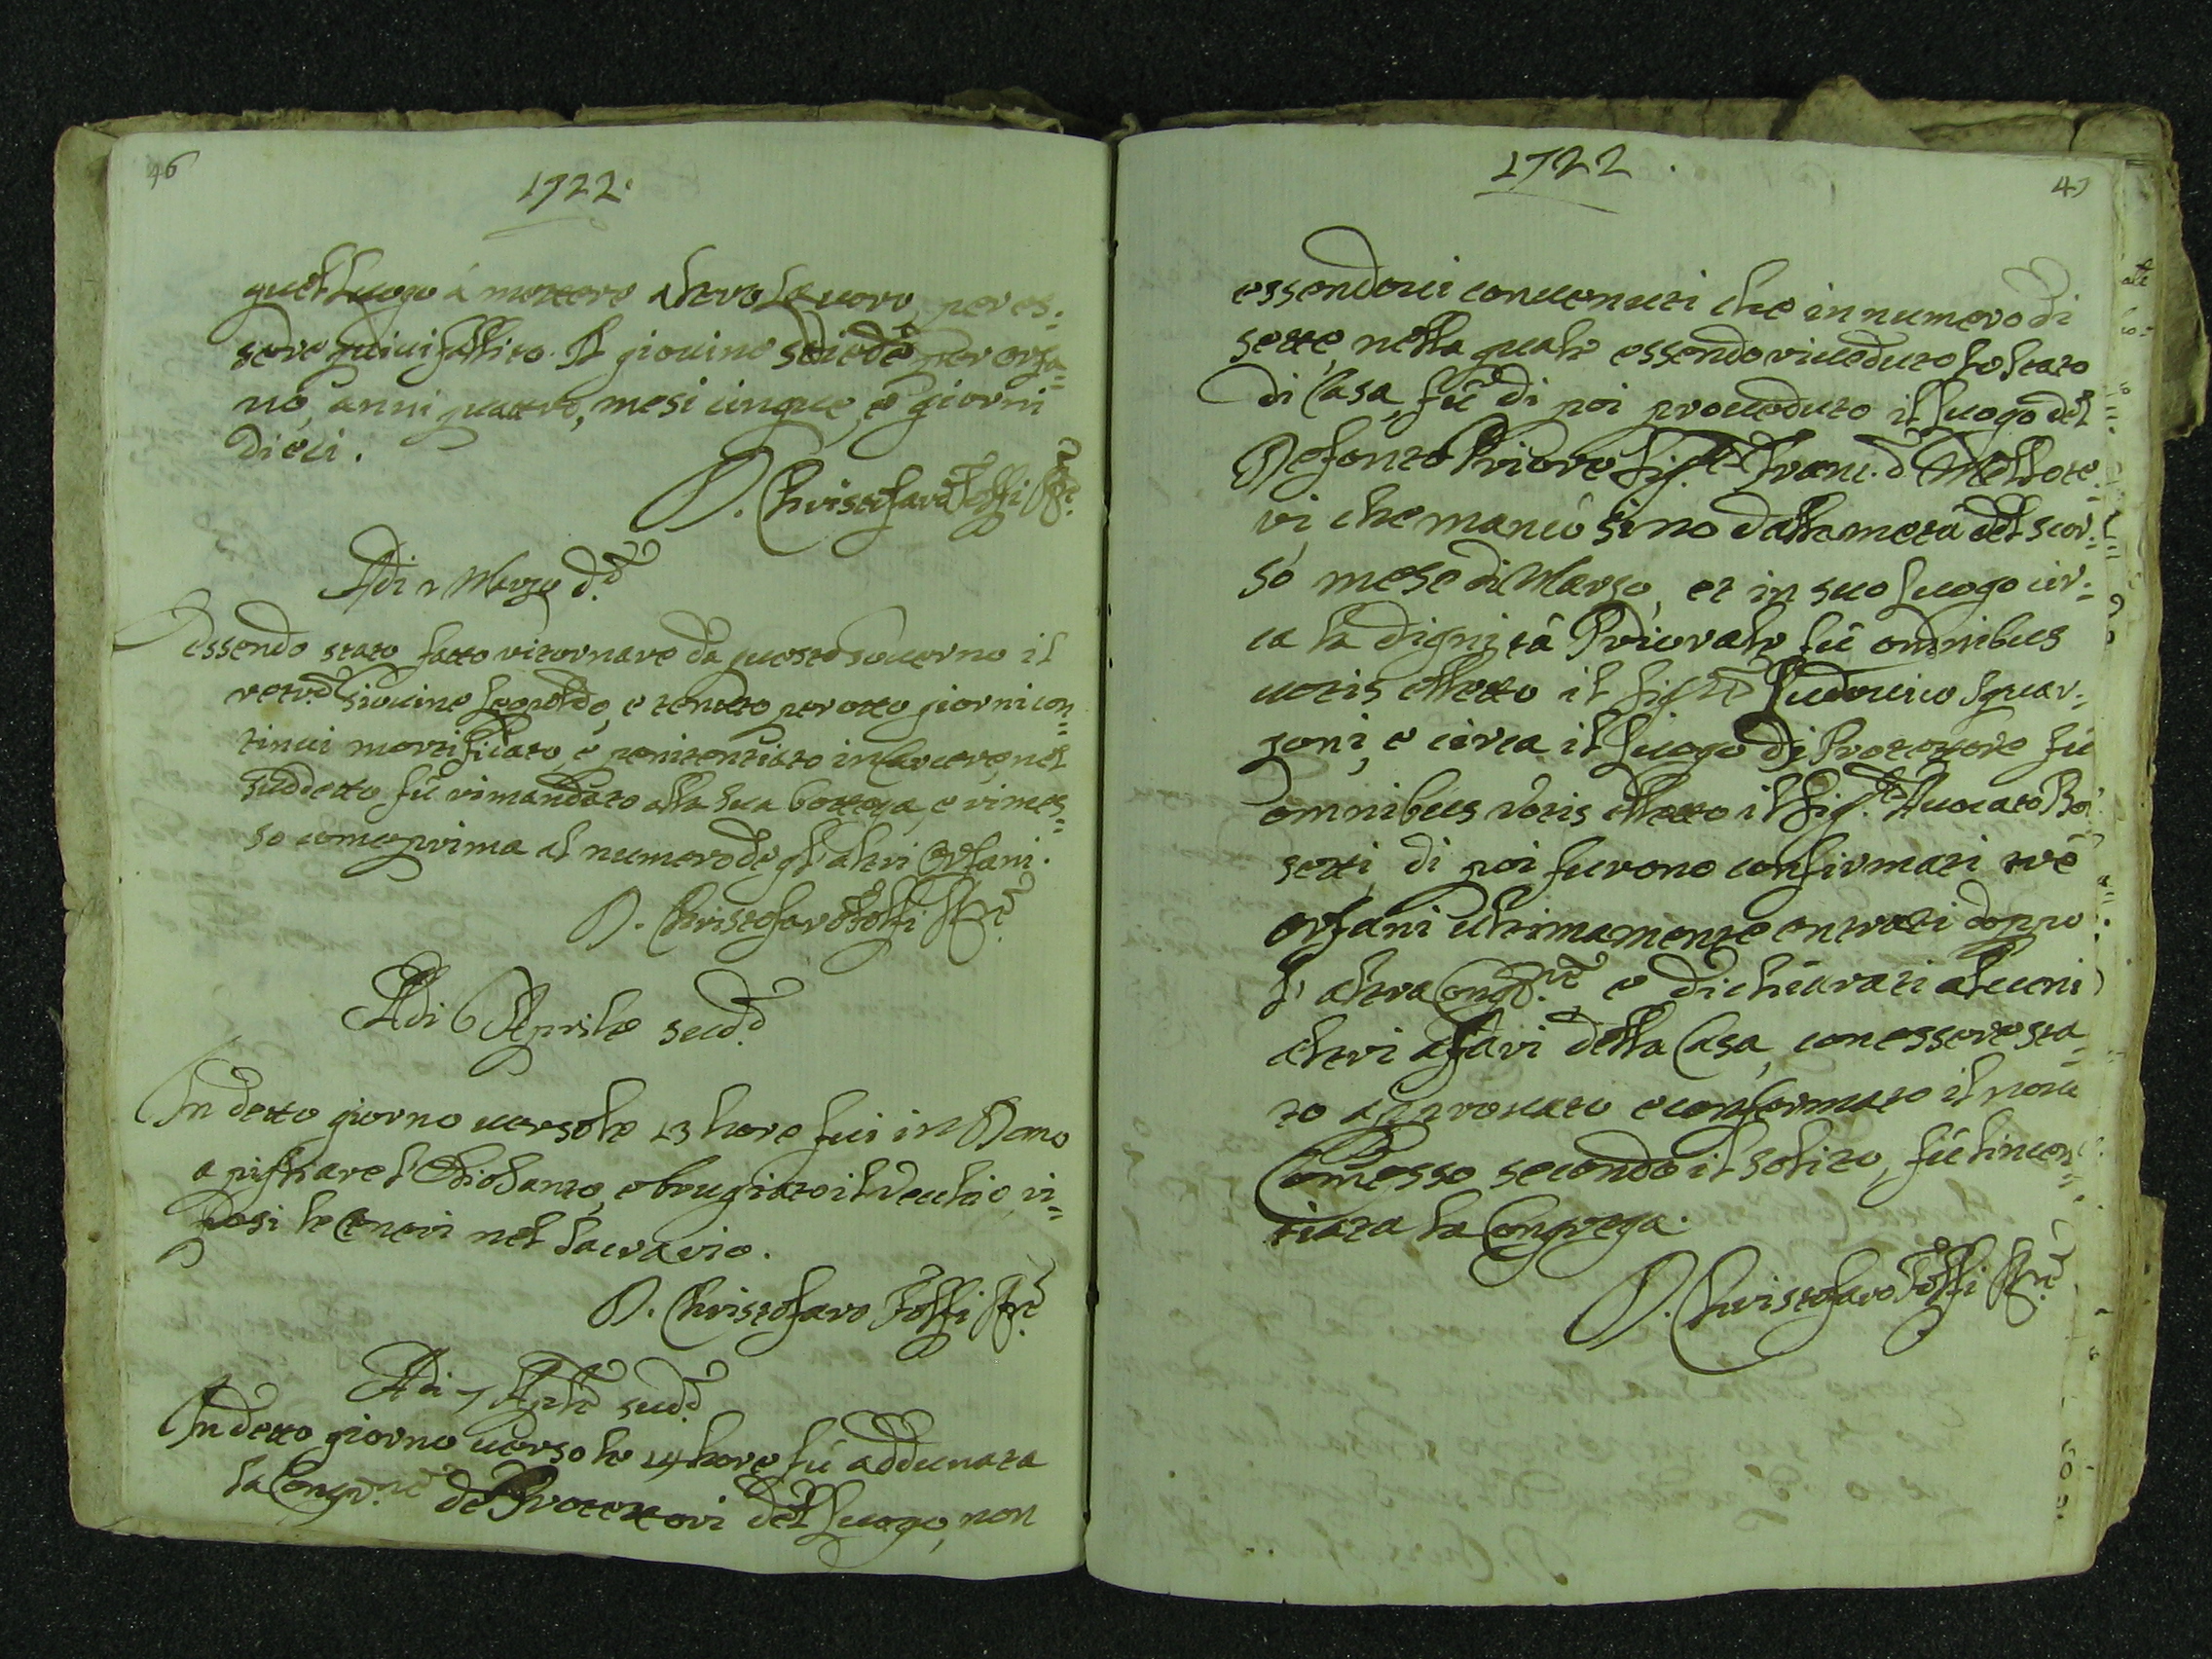 46
1722.
quel Luogo à mettere altro Lavoro, per es:
sere quivi fallito. Il giovine sudd.º è per orfa=
nò, anni quattro, mesi cinque, e giorni
dieci.
D. Christofaro Toffi
Adi 2 Marzo d.º
Essendo stato fatto ritornare da questo Governo il
retrod.º Giovine Leopoldo, e tenuto per otto giorni con=
tinui mortificato, e penitentiato in Carcere, nel
suddetto fù rimandato alla sua bottega, e rimes=
so come prima al numero de gl'altri Orfani.
D. Christofaro Toffi
Adi 6 Aprile sudd.º
In detto giorno verso le 13 hore fui in Domo
a pigliare l'Olio Santo, e brugiato il Vecchio, ri=
posi le Ceneri nel Sacrario.
D. Christofaro Toffi
Adi 7 Aple sudd.º
In detto giorno verso le 14 hore fù addunata
la Congr.ne de Protettori del Luogo, non
1722.
47
essendovi convenuti che in numero di
sette, nella quale essendo riveduto lo stato
di Casa, fù di poi proveduto il Luogo del
Defonto Priore Sig.re Franc.º Mellote:
vi, che mancò sino dalla metà del scor:
so mese di Marzo, et in suo luogo cir:
ca la dignità Priorale fù omnibus
votis eletto il Sig.re Ludovico Squar:
zoni, e circa il Luogo di Protettore fù
omnibus votis eletto il Sig.re Avocato Bo
setti, di poi furono confirmati trè
orfani ultimamente entrati doppo
l'altra Congr.ne, e dichiarati alcuni
altri afari della Casa, con essere sta=
to approvato e confermato il novo
Comesso secondo il solito, fù lincen=
tiata la Congrega.
D. Christofaro Toffi